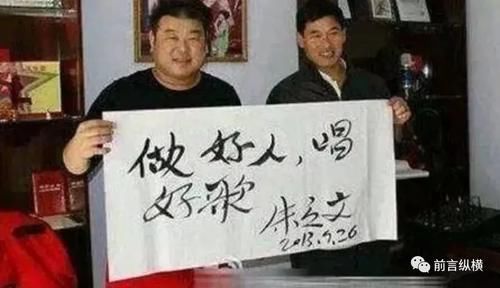 做好人,唱
好歌
朱之文
2013.9.26
前言纵横